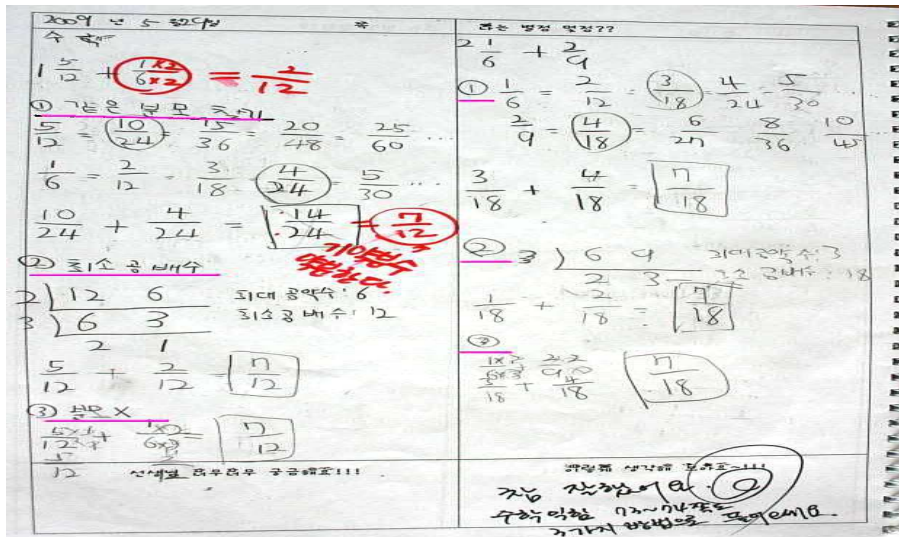 2009 년 5
수학
1 5/12 + 1×2/6×2 = 2/12
① 같은 분모 찾기
5/12 = 10/24 = 15/36 = 20/48 = 25/60 ...
1/6 = 2/12 = 3/18 = 4/24 = 5/30 ...
10/24 + 4/24 = 14/24 = 7/12
기약분수
② 최소공배수
2) 12 6
3) 6 3
2 1
최대공약수: 6
최소공배수: 12
5/12 + 2/12 = 7/12
③ 분모 X
1×2/6×2 = 7/12
선생님 궁금해요!!!
2 1/6 + 2/9
① 1/6 = 2/12 = 3/18 = 4/24 = 5/30
2/9 = 4/18 = 6/27 8/36 10/45 ...
3/18 + 4/18 = 7/18
② 3) 6 9
2 3
최대공약수: 3
최소공배수: 18
1/18 + 2/18 = 7/18
③
3/18 + 4/18 7/18
참 잘했어요.
수학익힘 73~74쪽도
3가지 방법으로 풀어보세요.